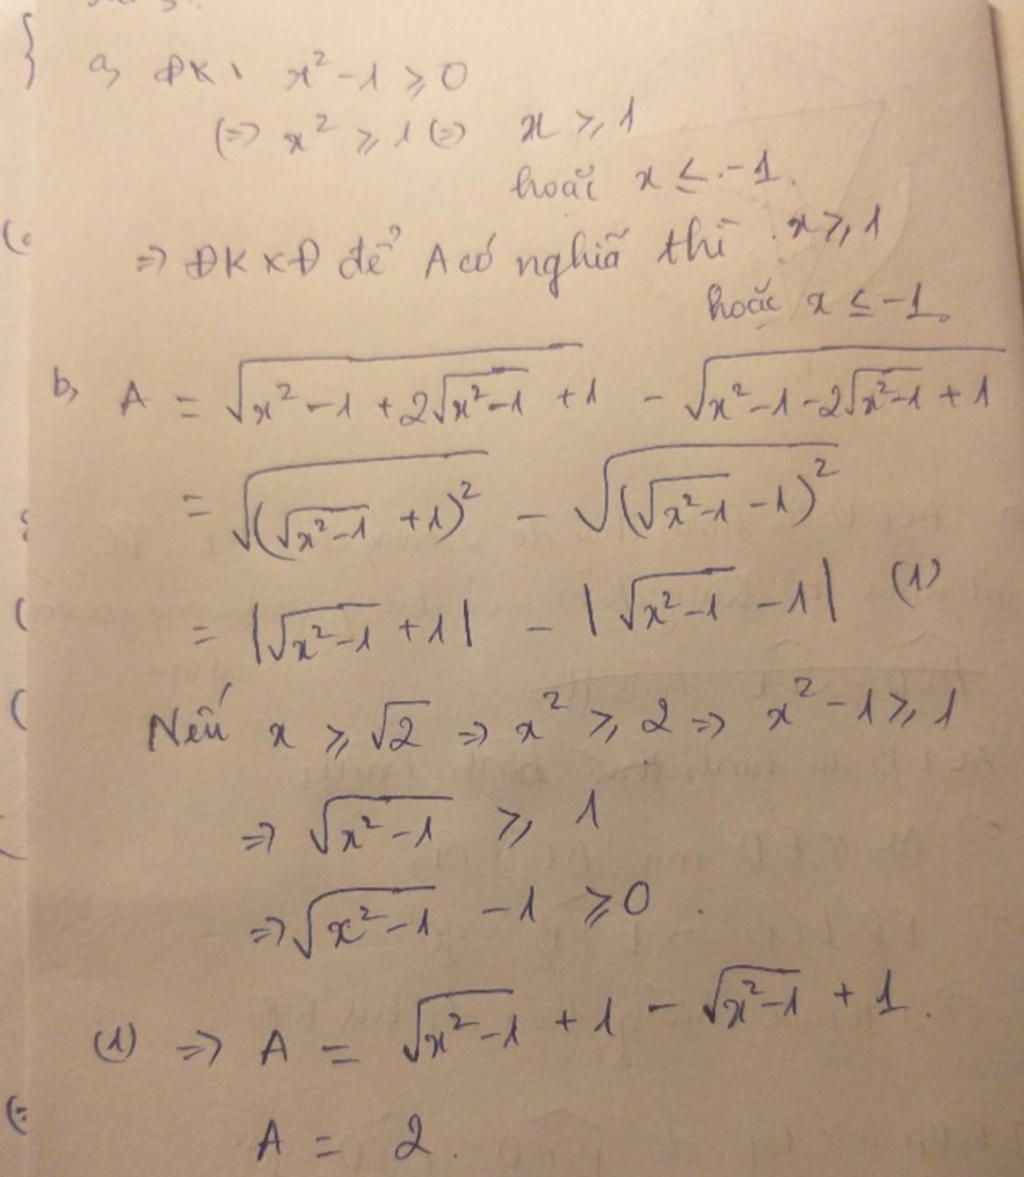 a, ĐK: x² - 1 ≥ 0
(=) x² ≥ 1 (=) x ≥ 1
hoặc x ≤ -1.
=> ĐKXĐ để A có nghĩa thì x ≥ 1
hoặc x ≤ -1.
b, A = √(x² - 1 + 2√(x² - 1) + 1) - √(x² - 1 - 2√(x² - 1) + 1)
= √((√(x² - 1) + 1)²) - √((√(x² - 1) - 1)²)
= |√(x² - 1) + 1| - |√(x² - 1) - 1| (1)
Nếu x ≥ √2 => x² ≥ 2 => x² - 1 ≥ 1
=> √(x² - 1) ≥ 1
=> √(x² - 1) - 1 ≥ 0.
(1) => A = √(x² - 1) + 1 - √(x² - 1) + 1.
A = 2.